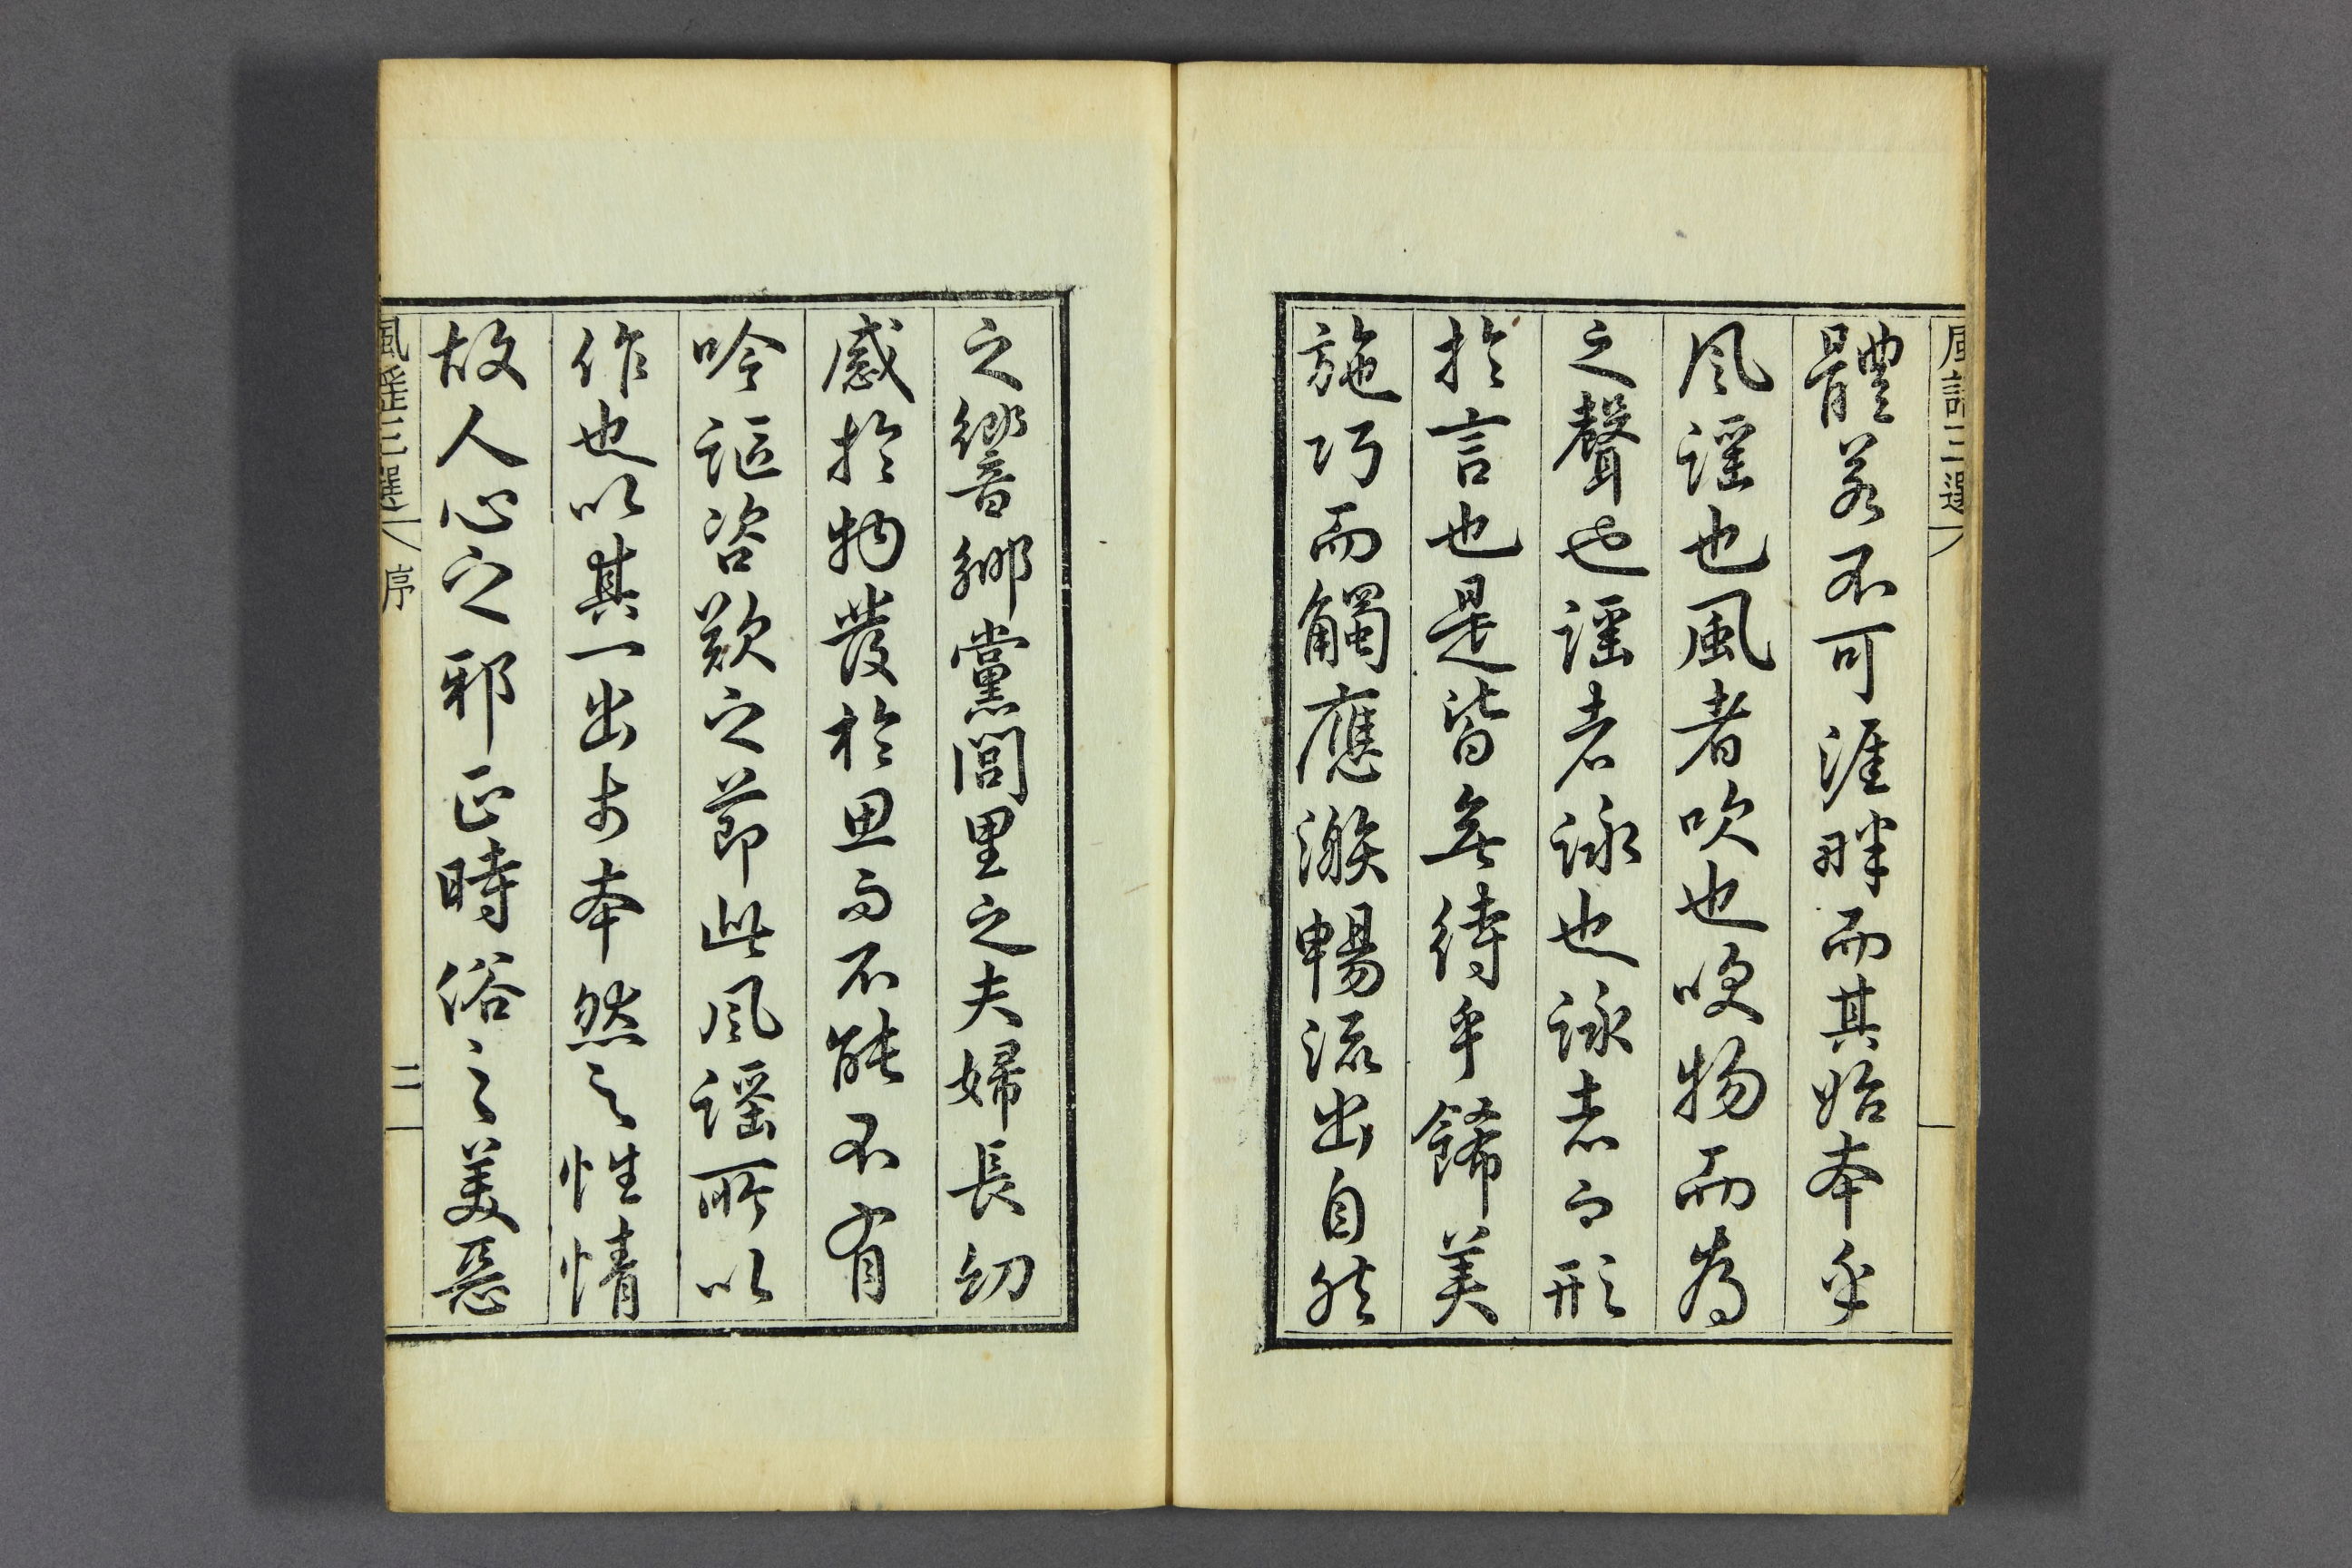 風謠三選
體若不可涯畔而其始本乎
風謠也風者吹也吹物而為
之聲也謠者詠也詠志而形
於言也是皆無待乎餙美
施巧而觸應滌暢流出自然
之響鄉黨閭里之夫婦長幼
感於物發於思而不能不有
吟謳咨歎之節此風謠所以
作也以其一出於本然之性情
故人心之邪正時俗之美惡
風謠三選 序 二